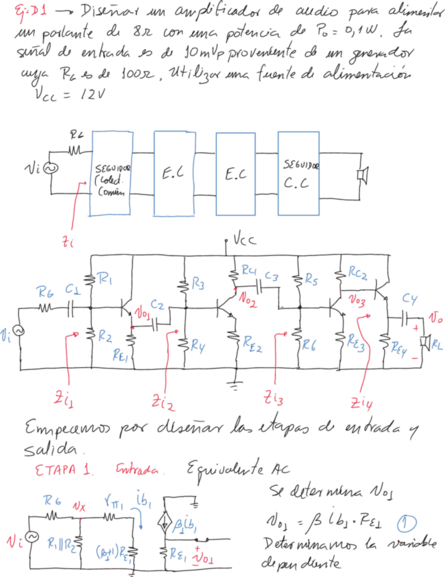 Ej=D1 → Diseñar un amplificador de audio para alimentar
un parlante de 8Ω con una potencia de Po = 0,1W. La
señal de entrada es de 10mVp proveniente de un generador
cuya RG es de 100Ω, Utilizar una fuente de alimentación
VCC = 12V
RG
Vi
Zi
SEGUIDOR
Colect
Común
E.C
E.C
SEGUIDOR
C.C
VCC
R1
R3
RC1
C3
R5
RC2
RG
C1
Vo1
C2
Vo2
Vo3
C4
Vi
R2
RE1
R4
RE2
R6
RE3
RE4
RL
Vo
+
-
Zi1
Zi2
Zi3
Zi4
Empecemos por diseñar las etapas de entrada y
salida.
ETAPA 1. Entrada. Equivalente AC
RG
Vx
rπ1
ib1
Vi
R1||R2
(β+1)RE1
β1ib1
RE1
+
Vo1
-
Se determina Vo1
Vo1 = β ib1 · RE1 ①
Determinamos la variable
dependiente